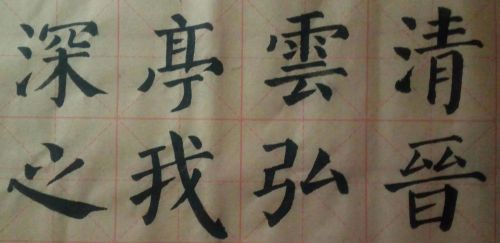 清晉
雲弘
亭我
深之